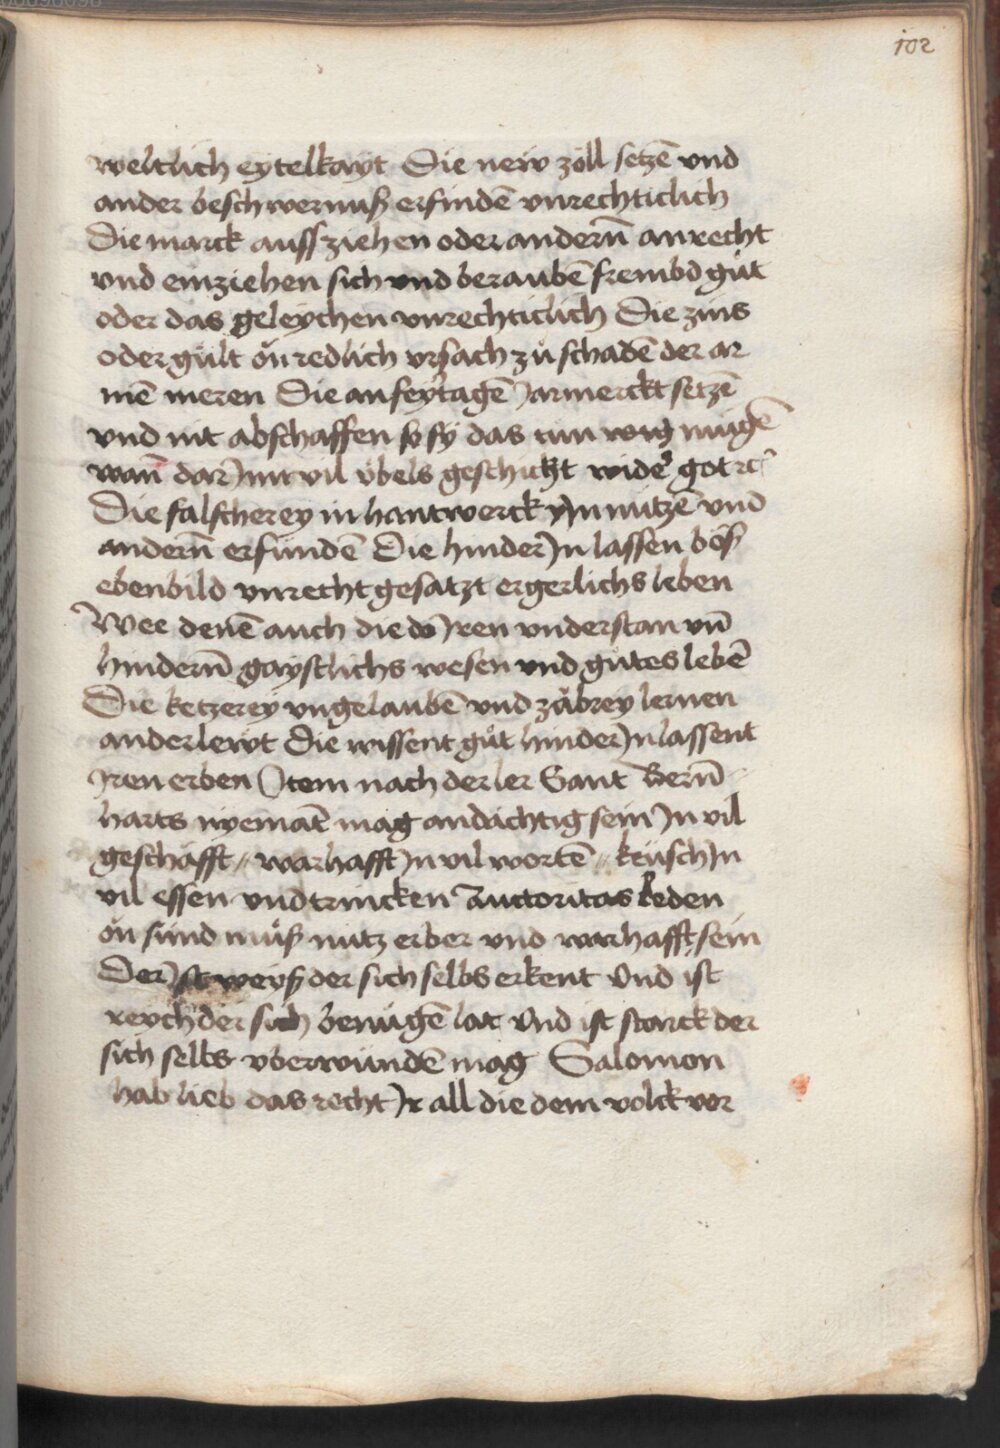 102
weltlich eytelkayt Die new zöll setzē vnd
ander beschwernuß erfindē vnrechticlich
Die marck auff ziehen oder andern̄ an recht
vnd einziehen sich vnd beraubē frembd gůt
oder das geleychen vnrechticlich Die zins
oder gült ön redlich vrsach zů schadē der ar
mē meren Die an feyrtagē Jarmerckt setzē
vnd nit abschaffen so sy das tun mügē
wan̄ dar Jnn vil übels geschicht wider got ꝛc
Die falscherey in hantwerck Jn nützē vnd
andern̄ erfundē Die hinder Jn lassen böß
ebenbild vnrecht gesatzt ergerlichs leben
Wee denē auch die do Jren vnderstan vn̄
hindern̄ gaystlichs wesen vnd gůtes lebē
Die ketzerey vngelaubē vnd zäbrey lernen
ander lewt Die wissent gůt hinder Jn lassent
Jren erben Jtem nach der ler Sant Bern̄
harts nyemāt mag andächtig sein Jn vil
geschäfft // warhafft Jn vil wortē // keüsch Jn
vil essen vnd trincken Auctoritas Reden
ön sünd můß nütz erber vnd warhafft sein
Der Jst weyß der sich selbs erkent Vnd ist
reych der sich benügē lat Vnd ist starck der
sich selbs vberwündē mag Salomon
hab lieb das recht Jr all die dem volck vor